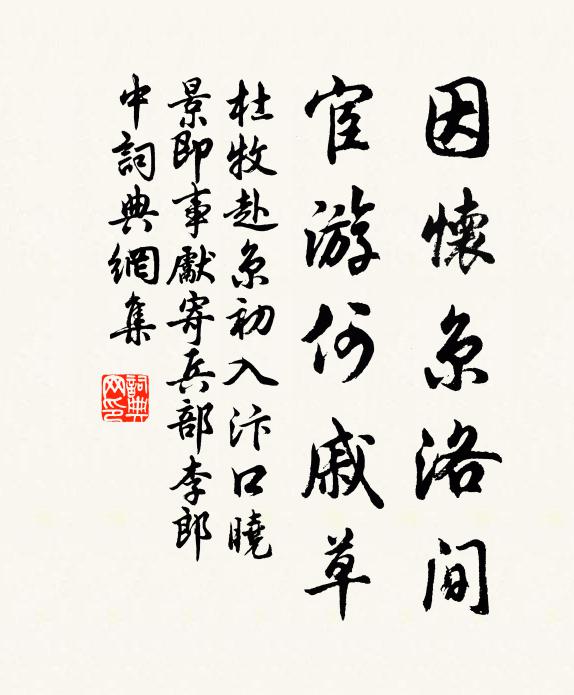 因懷京洛間
宦游何戚草
杜牧赴京初入汴口曉
景即事獻寄兵部李郎
中詞典網集
詞典
网印